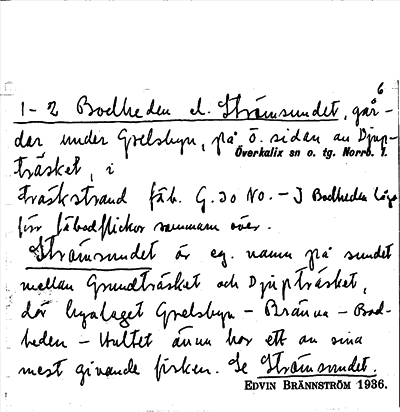 6
1-2 Bodheden el. Strömsundet, går-
dar under Grelsbyn, på ö. sidan av Djup-
Överkalix sn o. tg. Norrb. l.
träsket, i
Träskstrand fäb. G.30 NO. – I Bodheden låge
förr fäbodflickor sommaren över.
Strömsundet är eg. namn på sundet
mellan Grundträsket och Djupträsket,
där byalaget Grelsbyn – Bränna – Bod-
heden – Hultet ännu har ett av sina
mest givande fisken. Se Strömsundet.
EDVIN BRÄNNSTRÖM 1936.